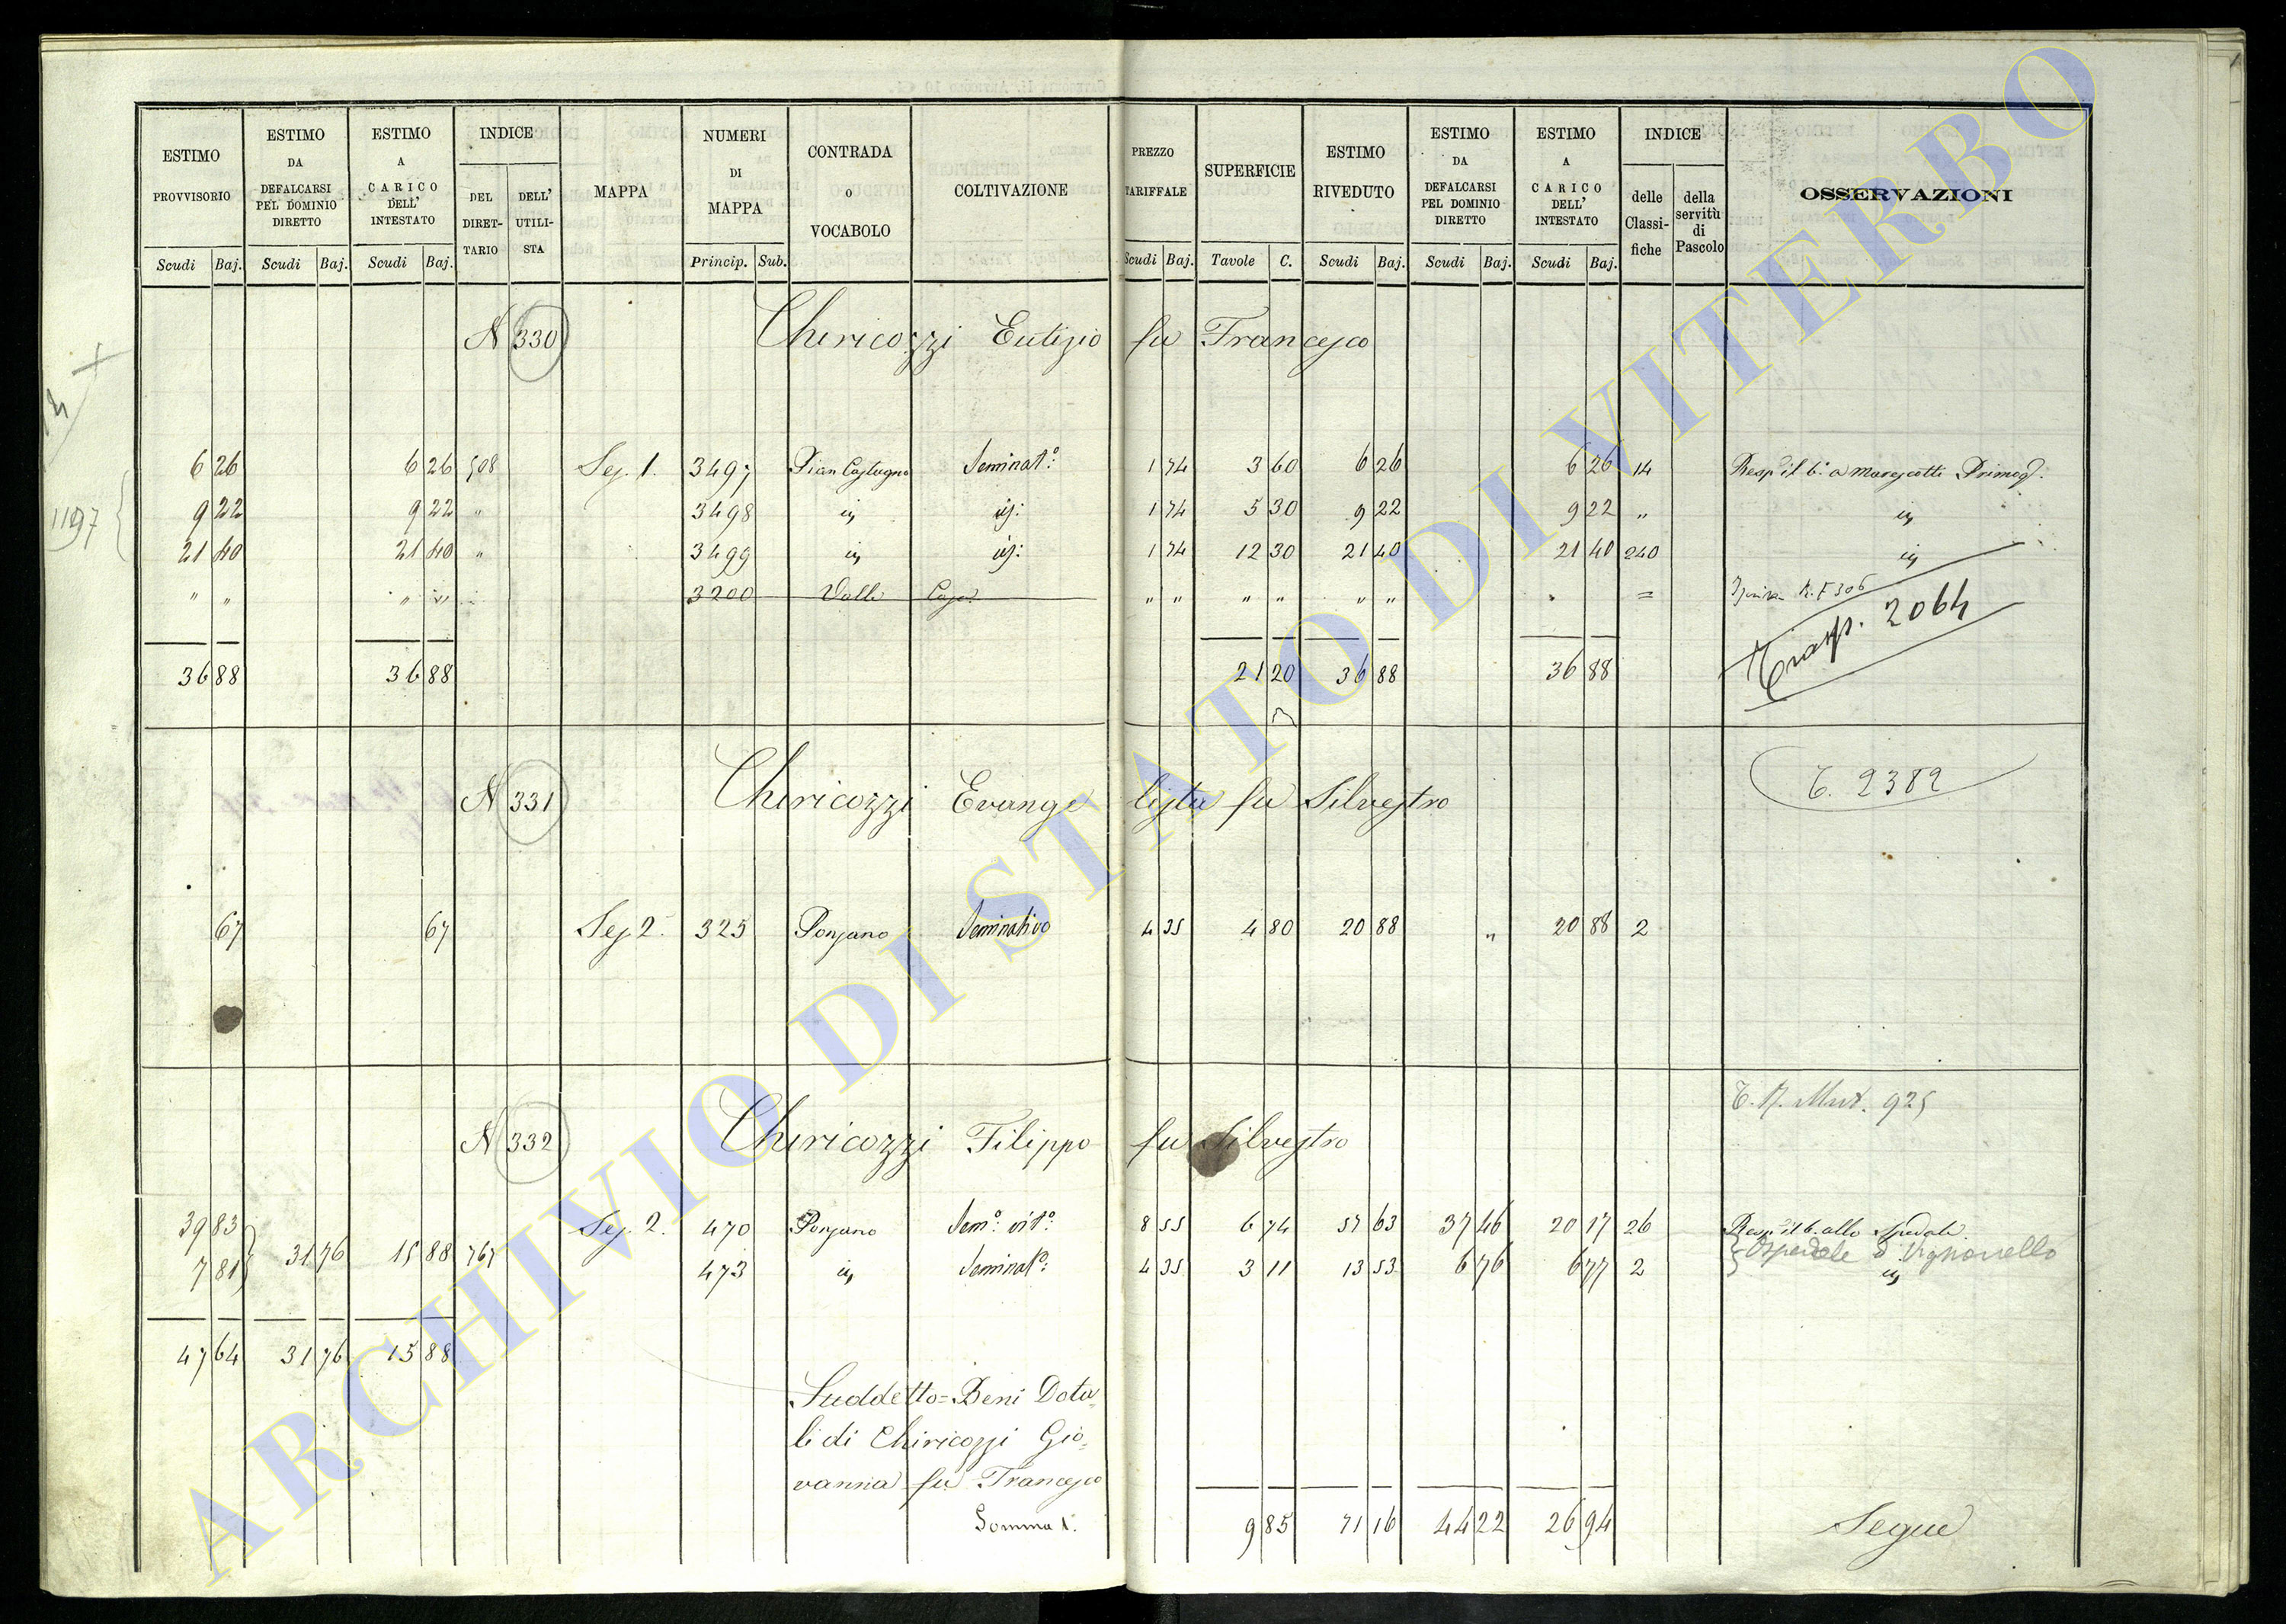 ESTIMO PROVVISORIO Scudi Baj.
ESTIMO DA DEFALCARSI PEL DOMINIO DIRETTO Scudi Baj.
ESTIMO A CARICO DELL' INTESTATO Scudi Baj.
INDICE DEL DIRETTARIO DELL' UTILISTA
MAPPA
NUMERI DI MAPPA Princip. Sub.
CONTRADA o VOCABOLO
COLTIVAZIONE
PREZZO TARIFFALE Scudi Baj.
SUPERFICIE Tavole C.
ESTIMO RIVEDUTO Scudi Baj.
ESTIMO DA DEFALCARSI PEL DOMINIO DIRETTO Scudi Baj.
ESTIMO A CARICO DELL' INTESTATO Scudi Baj.
INDICE delle Classifiche della servitù di Pascolo
OSSERVAZIONI
N 330 Chericozzi Eutizio fu Francesco
6 26 6 26 508 Sez. 1. 3497 Pian Castagno Seminat.º 1 74 3 60 6 26 6 26 14 Resp. il b. a Marescotti Primog.
1197
9 22 9 22 " 3498 id id: 1 74 5 30 9 22 9 22 " id
21 40 21 40 " 3499 id id: 1 74 12 30 21 40 21 40 240 id
" " " " 3200 Valle Casa " " " " " " =
Trasp. 2064
36 88 36 88 21 20 36 88 36 88
N 331 Chericozzi Evangelista fu Silvestro
T. 2382
67 67 Sez 2. 325 Ponzano Seminativo 4 35 4 80 20 88 " 20 88 2
T. N. Mut. 925
N 332 Chericozzi Filippo fu Silvestro
39 83 Sez. 2. 470 Ponzano Sem.º vit.º 8 55 6 74 57 63 37 46 20 17 26 Resp. il b. allo Spedale.
31 76 15 88 767 Ospedale di Vignanello
7 81 473 id Seminat.º: 4 35 3 11 13 53 6 76 6 77 2 id
47 64 31 76 15 88
Suddetto = Beni Dota-
li di Chiricozzi Gio-
vanna fu Francesco
Somma 1. 9 85 71 16 44 22 26 94 Segue
ARCHIVIO DI STATO DI VITERBO